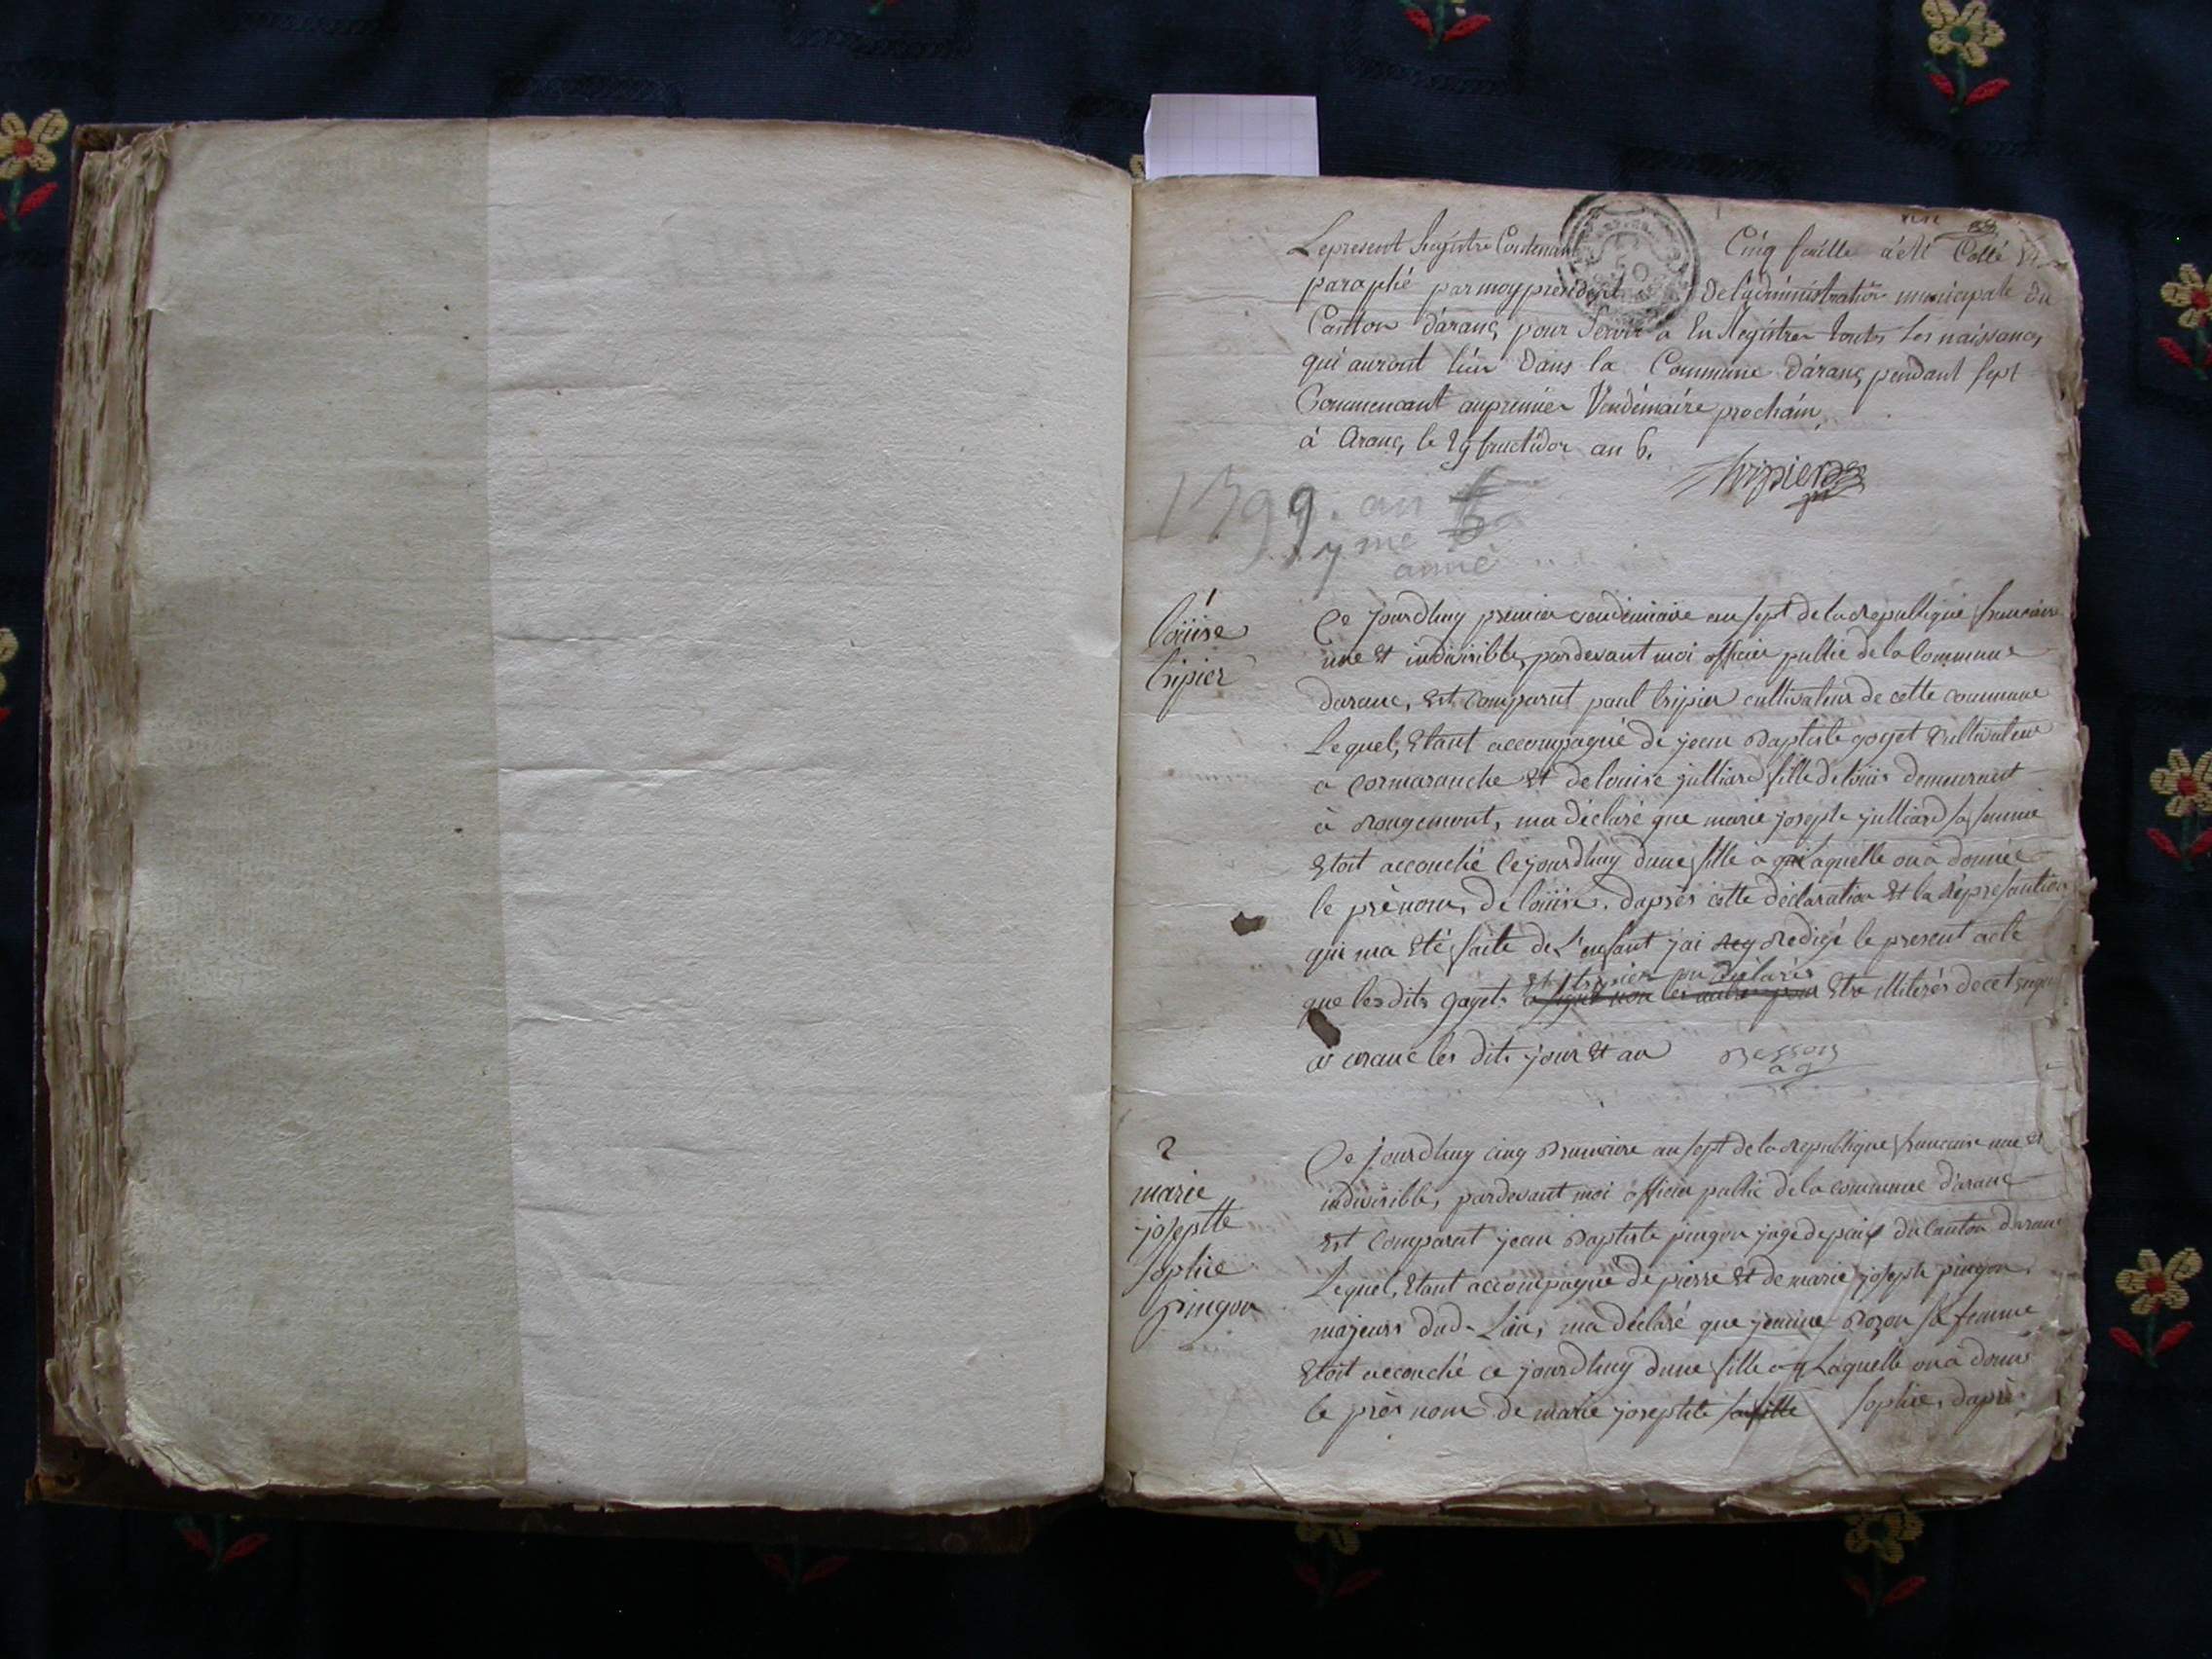 Le present Registre Contenant Cinq feuille a été Cotté et
paraphé par moy president de l'administration municipale du
Canton d'aranc, pour Servir a En Registrer toutes les naissances
qui auront lieu dans la Commune d'aranc, pendant sept
Commencant au premier Vendémiaire prochain,
à Aranc, le 29 fructidor an 6.
1799. an 6
7me
année
1
loüise
tripier
Ce jourdhuy premier vendemiaire an sept de la republique francaise
une et indivisible, pardevant moi officier public de la commune
daranc, Est Comparut paul tripier cultivateur de cette commune
Lequel, Etant accompagné de jean Baptiste goyet Cultivateur
a Cormaranche Et de louise julliard fille de louis demeurant
à rougemont, ma déclaré que marie josepte julliard sa femme
Etoit accouché Ce jourdhuy dune fille a qui laquelle on a donnée
le prénom, de loüise. daprès cette déclaration Et la représantation
qui ma Eté faite de L'enfant j'ai reg redigé le present acte
et tripier on déclarés
que les dits goyet a signé non les autres pour Etre illiterés de cet enquis
à aranc les dits jour Et an
2
marie
josepte
sophie
pingon
Ce jourdhuy cinq Brumaire an sept de la republique francaise une et
indivisible, pardevant moi officier public de la commune d'aranc
Est Comparut jean Baptiste pingon juge de paix du Canton daranc
Lequel, Etant accompagné de pierre Et de marie josepte pingon
majeurs dud. Lieu, ma déclaré que jeanne Bozon sa femme
Etoit accouché ce jourdhuy dune fille a q Laquelle on a donné
le près nom de marie josepte sa fille sophie, daprè